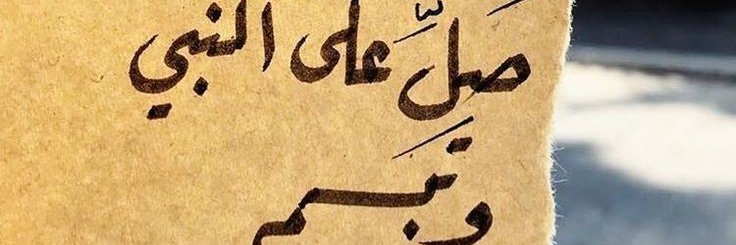 صَلِّ عَلى النبي
وتَبسم